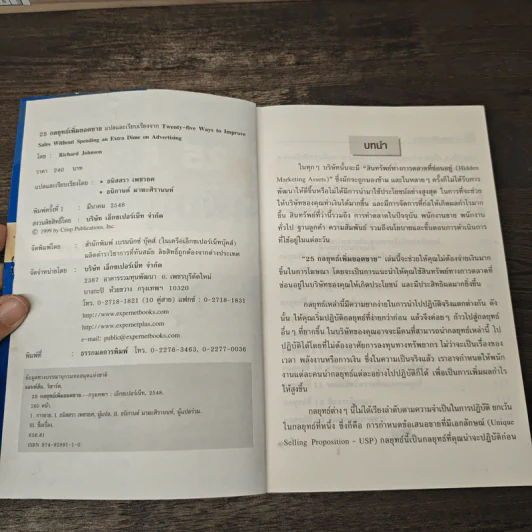 25 กลยุทธ์เพิ่มยอดขาย แปลและเรียบเรียงจาก Twenty-five Ways to Improve
Sales Without Spending an Extra Dime on Advertising
โดย : Richard Johnson
ราคา 240 บาท
แปลและเรียบเรียงโดย : • ธนิตสรา เพชรยศ
• ธนิกานต์ มาฆะศิรานนท์
พิมพ์ครั้งที่ 1 : มีนาคม 2548
สงวนลิขสิทธิ์โดย : บริษัท เอ็กซเปอร์เน็ท จำกัด
© 1999 by Crisp Publications, Inc.
จัดพิมพ์โดย : สำนักพิมพ์ เบรนเน็ทซ์ บุ๊คส์ (ในเครือเอ็กซเปอร์เน็ทบุ๊คส์)
ผลิตตำราวิชาการที่ทันสมัย ลิขสิทธิ์ถูกต้องจากต่างประเทศ
จัดจำหน่ายโดย : บริษัท เอ็กซเปอร์เน็ท จำกัด
2387 อาคารรวมทุนพัฒนา ถ.เพชรบุรีตัดใหม่
บางกะปิ ห้วยขวาง กรุงเทพฯ 10320
โทร. 0-2718-1821 (10 คู่สาย) แฟกซ์ : 0-2718-1831
http://www.expernetbooks.com
http://www.expernetplus.com
e-mail: public@expernetbooks.com
พิมพ์ที่ : ธรรกมลการพิมพ์ โทร. 0-2276-3463, 0-2277-0036
ข้อมูลทางบรรณานุกรมหอสมุดแห่งชาติ
จอห์นสัน, ริชาร์ด.
25 กลยุทธ์เพิ่มยอดขาย.--กรุงเทพฯ : เอ็กซเปอร์เน็ท, 2548.
160 หน้า.
1. การขาย. I. ธนิตสรา เพชรยศ, ผู้แปล. II. ธนิกานต์ มาฆะศิรานนท์, ผู้แปลร่วม.
III. ชื่อเรื่อง.
658.81
ISBN 974-92881-1-0
บทนำ
ในทุกๆ บริษัทนั้นจะมี “สินทรัพย์ทางการตลาดที่ซ่อนอยู่ (Hidden
Marketing Assets)” ซึ่งมักจะถูกมองข้าม และในหลายๆ ครั้งก็ไม่ได้รับการ
พัฒนาให้ดีขึ้นหรือไม่ได้มีการนำมาใช้ประโยชน์อย่างสูงสุด ในการที่จะช่วย
ให้บริษัทของคุณทำเงินได้มากขึ้น และมีการจัดการที่ก่อให้เกิดผลกำไรมาก
ขึ้น สินทรัพย์ที่ว่านี้รวมถึง การทำตลาดในปัจจุบัน พนักงานขาย พนักงาน
ทั่วไป ฐานลูกค้า ความสัมพันธ์ รวมถึงนโยบายและขั้นตอนการดำเนินการ
ที่ใช้อยู่ในแต่ละวัน
“25 กลยุทธ์เพิ่มยอดขาย” เล่มนี้จะช่วยให้คุณไม่ต้องจ่ายเงินมาก
ขึ้นในการโฆษณา โดยจะเป็นการแนะนำให้คุณใช้สินทรัพย์ทางการตลาดที่
ซ่อนอยู่ในบริษัทของคุณให้เกิดประโยชน์ และมีประสิทธิผลมากยิ่งขึ้น
กลยุทธ์เหล่านี้มีความยากง่ายในการนำไปปฏิบัติจริงแตกต่างกัน ดัง
นั้น ให้คุณเริ่มปฏิบัติกลยุทธ์ที่ง่ายกว่าก่อน แล้วจึงค่อยๆ ก้าวไปสู่กลยุทธ์
อื่นๆ ที่ยากขึ้น ในบริษัทของคุณอาจจะมีคนที่สามารถนำกลยุทธ์เหล่านี้ ไป
ปฏิบัติได้โดยที่ไม่ต้องอาศัยการลงทุนทางทรัพยากร ไม่ว่าจะเป็นเรื่องของ
เวลา พลังงานหรือการเงิน ซึ่งในความเป็นจริงแล้ว เราอาจกำหนดให้พนัก
งานแต่ละคนนำกลยุทธ์แต่ละอย่างไปปฏิบัติก็ได้ เพื่อเป็นการเพิ่มผลกำไร
ให้สูงขึ้น
กลยุทธ์ต่างๆ นี้ไม่ได้เรียงลำดับตามความจำเป็นในการปฏิบัติ ยกเว้น
ในกลยุทธ์ที่หนึ่ง ซึ่งก็คือ การกำหนดข้อเสนอขายที่มีเอกลักษณ์ (Unique
Selling Proposition - USP) กลยุทธ์นี้เป็นกลยุทธ์ที่คุณน่าจะปฏิบัติก่อน